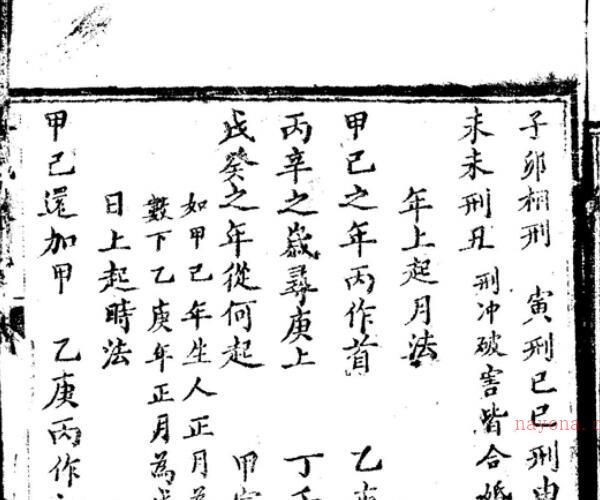 子卯相刑 寅刑巳巳刑申
未未刑丑 刑冲破害皆合婚
年上起月法
甲己之年丙作首 乙
丙辛之歲尋庚上 丁
戊癸之年從何起 甲
如甲己年生人正月為
數下乙庚年正月為
日上起時法
甲己還加甲 乙庚丙作
nayona.